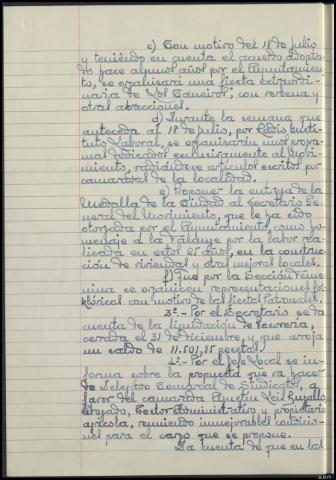 c) Con motivo del 18 de julio
y teniendo en cuenta el acuerdo adopta-
do hace algunos años por el Ayuntamien-
to, se organizará una fiesta extraordi-
naria de "Los Caneiros", con verbena y
otras atracciones.
d) Durante la semana que
anteceda al 18 de julio, por Radio Insti-
tuto Laboral, se organizarán unos progra-
mas dedicados exclusivamente al Movi-
miento, radiándose artículos escritos por
camaradas de la localidad.
e) Proponer la entrega de la
Medalla de la Ciudad al Secretario Ge-
neral del Movimiento, que le ha sido
otorgada por el Ayuntamiento, como ho-
menaje a la Falange por la labor rea-
lizada en estos 25 años, en la construc-
ción de viviendas y otras mejoras locales.
f) Que por la Sección Feme-
nina se organicen representaciones fol-
klóricas con motivo de las fiestas Patronales.
3º.- Por el Secretario se da
cuenta de la liquidación de Tesorería,
cerrada el 31 de Diciembre, y que arroja
un saldo de 11.501,85 pesetas.
4º.- Por el Jefe Local se in-
forma sobre la propuesta que va hacer
de Delegado Comarcal de Sindicatos, a
favor del camarada Agustín Leis
abogado, Gestor Administrativo y propietario
agrícola, reuniendo inmejorables condicio-
nes para el cargo que se propone.
Da cuenta de que en las